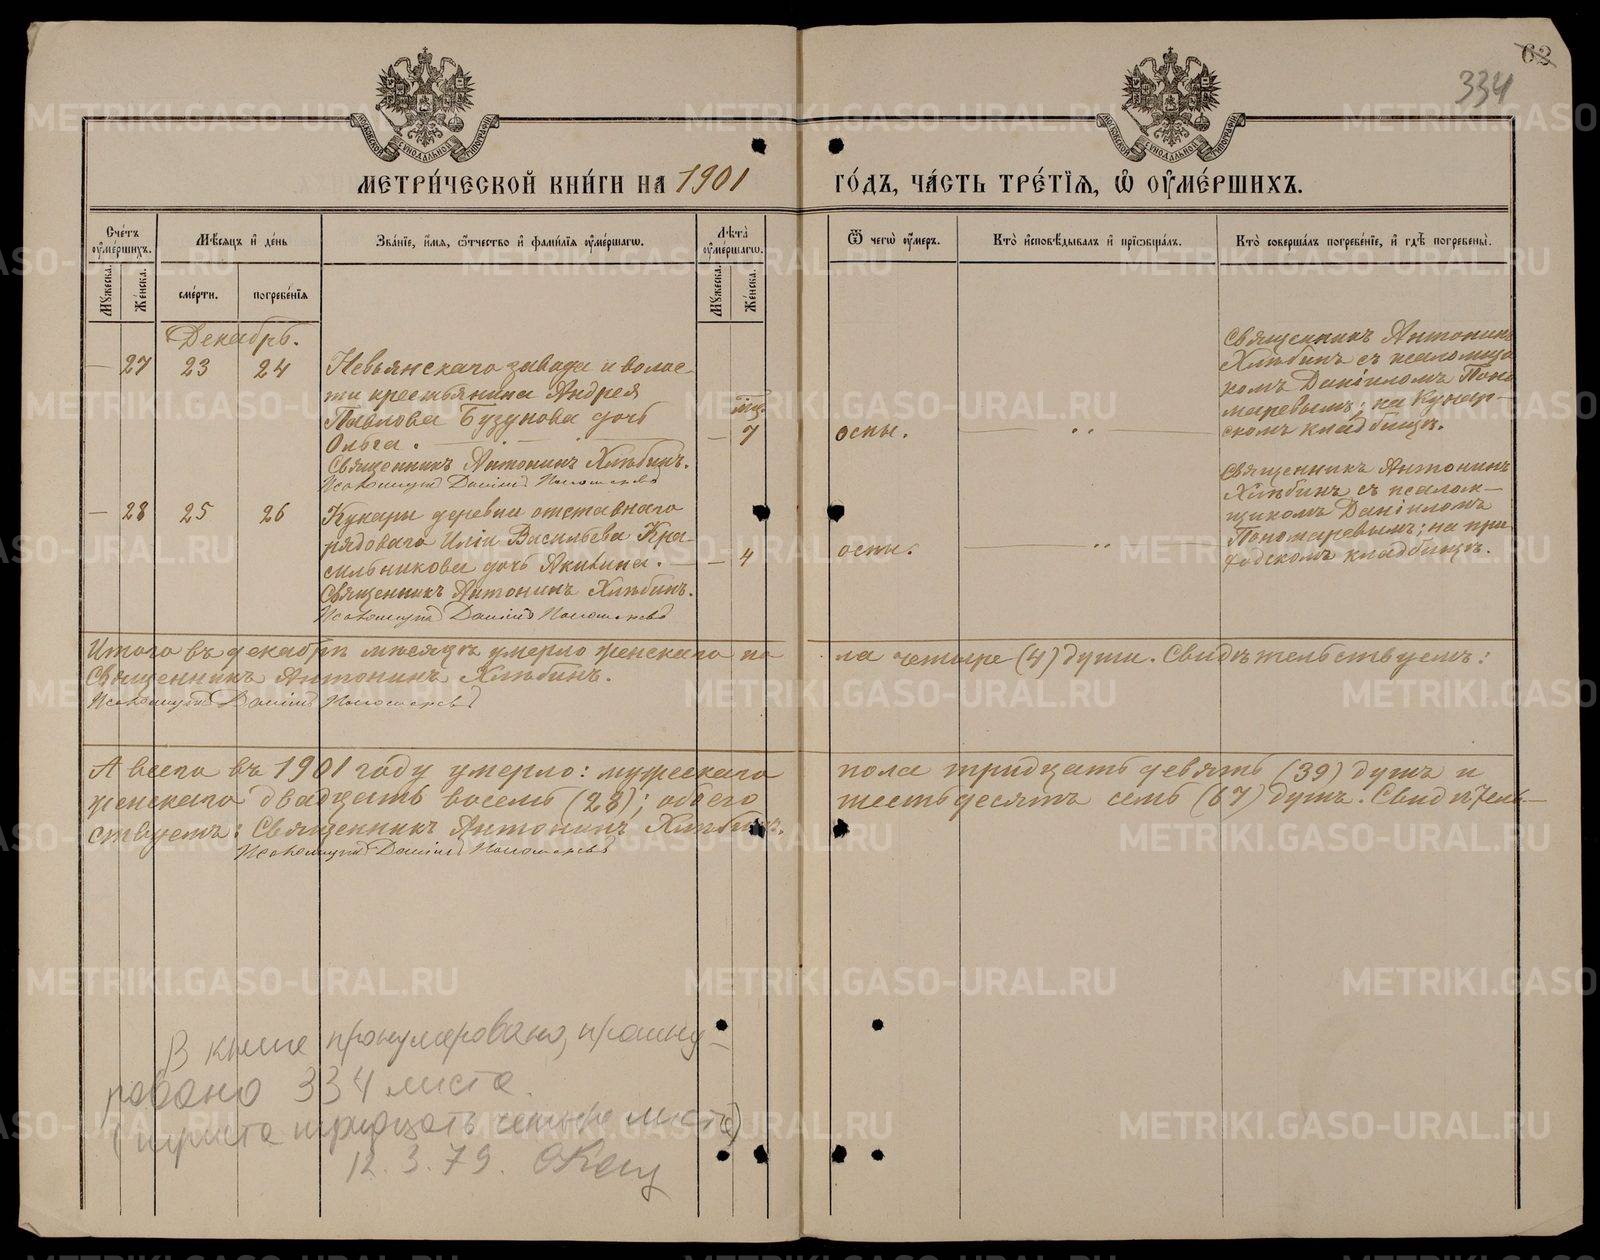 63
334
МОСКОВСКОЙ СѴНОДАЛЬНОЙ ТИПОГРАФІИ
МОСКОВСКОЙ СѴНОДАЛЬНОЙ ТИПОГРАФІИ
МЕТРИ́ЧЕСКОЙ КНИ́ГИ НА 1901 ГО́ДЪ, ЧА́СТЬ ТРЕ́ТІѦ, Ѽ ОУ҆МЕ́РШИХЪ.
Сче́тъ оу҆ме́ршихъ.
Мѣ́сяцъ и҆ де́нь
Зва́нїе, и҆́мя, ѻ҆́тчество и҆ фами́лїя оу҆ме́ршагѡ.
Лѣ̀та оу҆ме́ршагѡ.
Ѿ чегѡ̀ оу҆́меръ.
Кто̀ и҆сповѣ́дывалъ и҆ прїѡбща́лъ.
Кто̀ соверша́лъ погребе́нїе, и҆ гдѣ̀ погребены̀.
Мꙋ́жеска.
Же́нска.
сме́рти.
погребе́нїя
Мꙋ́жеска.
Же́нска.
Декабрь.
— 27 23 24
Невьянскаго завода и волос-
ти крестьянина Андрея
Павлова Бузунова дочь
Ольга.
Священникъ Антонинъ Хлѣбинъ.
Псаломщикъ Даніилъ Пономаревъ
мц.
— 7
оспы.
Священникъ Антонинъ
Хлѣбинъ съ псаломщи-
комъ Даніиломъ Поно
маревымъ; на Кунар-
скомъ кладбищѣ.
— 28 25 26
Кунары деревни отставнаго
рядоваго Иліи Васильева Кра-
сильникова дочь Акилина.
Священникъ Антонинъ Хлѣбинъ.
Псаломщикъ Даніилъ Пономаревъ
— 4
оспы.
Священникъ Антонинъ
Хлѣбинъ съ псалом-
щикомъ Даніиломъ
Пономаревымъ; на при
ходскомъ кладбищѣ.
Итого въ декабрѣ мѣсяцѣ умерло женскаго по ла четыре (4) души. Свидѣтельствуемъ:
Священникъ Антонинъ Хлѣбинъ.
Псаломщикъ Даніилъ Пономаревъ
А всего въ 1901 году умерло: мужескаго пола тридцать девять (39) душъ и
женскаго двадцать восемь (28); обоего шестьдесятъ семь (67) душъ. Свидѣтель-
ствуемъ: Священникъ Антонинъ Хлѣбинъ.
Псаломщикъ Даніилъ Пономаревъ
В книге пронумеровано, прошну-
ровано 334 листа.
(триста тридцать четыре листа)
12.3.79.
METRIKI.GASO-URAL.RU